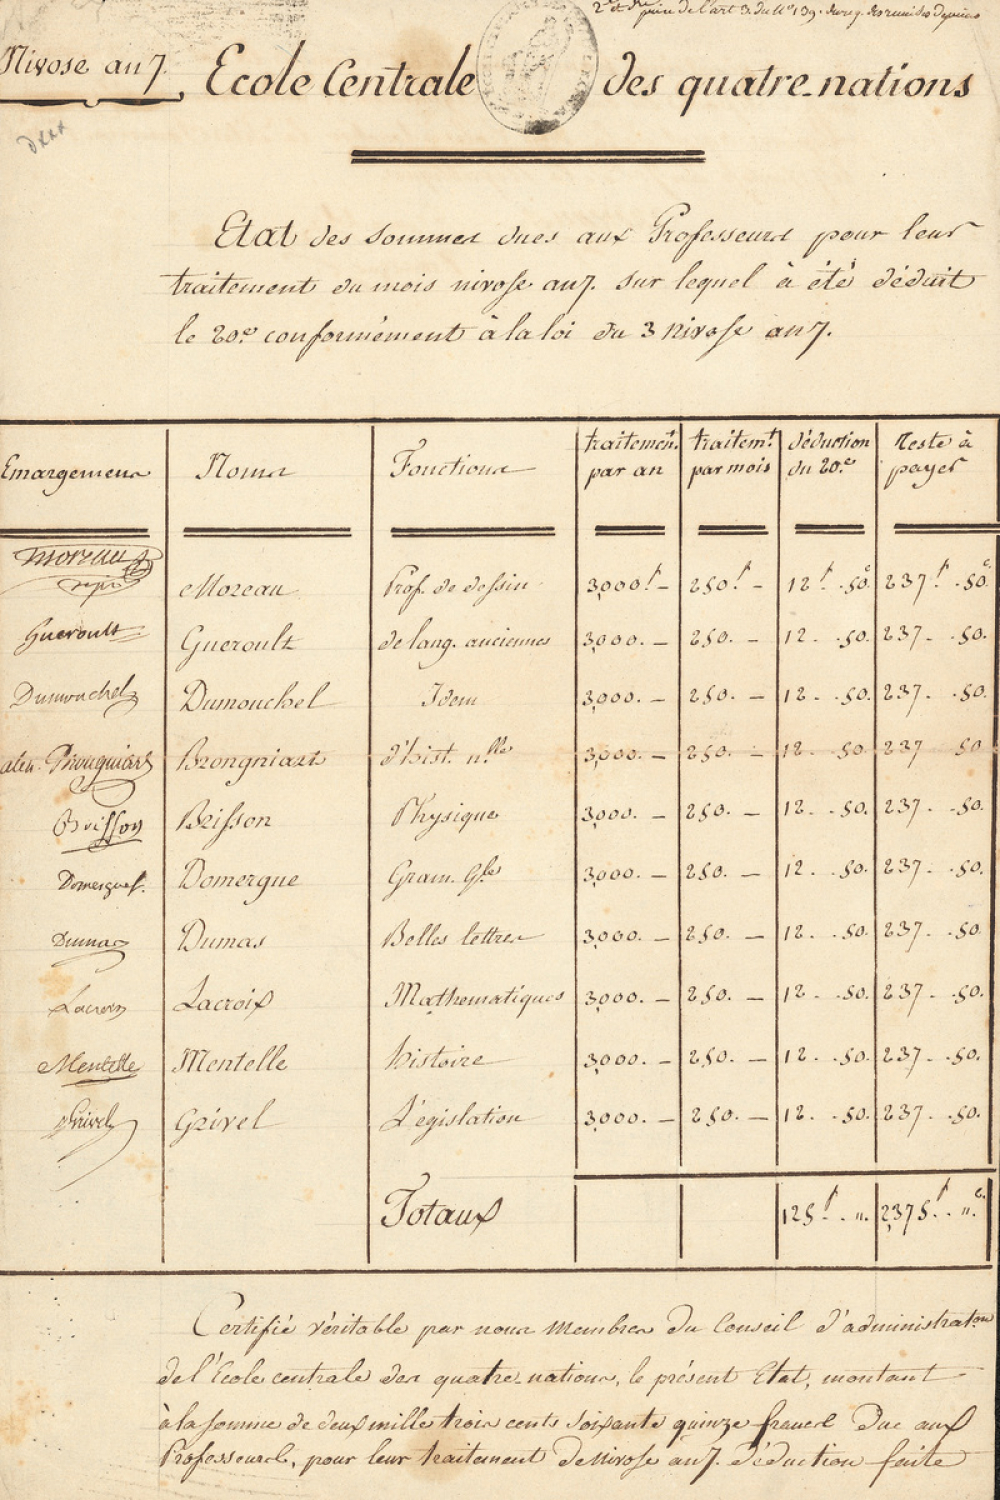 2e et dre pièce de l'art 3. du No 139. du reg. des remises de pièces
Nivose an 7.
Ecole Centrale des quatre-nations
Etat des sommes dues aux Professeurs pour leur
traitement du mois nivose an 7. sur lequel à été déduit
le 20e. conformément à la loi du 3 Nivose an 7.
Emargemens Noms Fonctions traitement. par an traitemt. par mois déduction du 20.e Reste à payer
Moreau Moreau Prof. de dessin 3,000.f - 250.f - 12.f .50.c 237.f .50.c
Gueroult Gueroult de lang. anciennes 3,000. - 250. - 12. .50. 237. .50.
Dumouchel Dumouchel Idem 3,000. - 250. - 12. .50. 237. .50.
alex. Brongniart Brongniart d'hist. nlle 3,000. - 250. - 12. .50. 237. .50.
Brisson Brisson Physique 3,000. - 250. - 12. .50. 237. .50.
Domergue Domergue Gram. Gle 3,000. - 250. - 12. .50. 237. .50.
Dumas Dumas Belles lettres 3,000. - 250. - 12. .50. 237. .50.
Lacroix Lacroix Mathematiques 3,000. - 250. - 12. .50. 237. .50.
Mentelle Mentelle histoire 3,000. - 250. - 12. .50. 237. .50.
Grivel Grivel Législation 3,000. - 250. - 12. .50. 237. .50.
Totaux 125.f . ". 2,375.f . ".c.
Certifié véritable par nous membres du Conseil d'administraton
de l'école centrale des quatre-nations, le présent Etat, montant
à la somme de deux mille trois cents soixante quinze francs Due aux
Professeurs, pour leur traitement de Nivose an 7. déduction faite